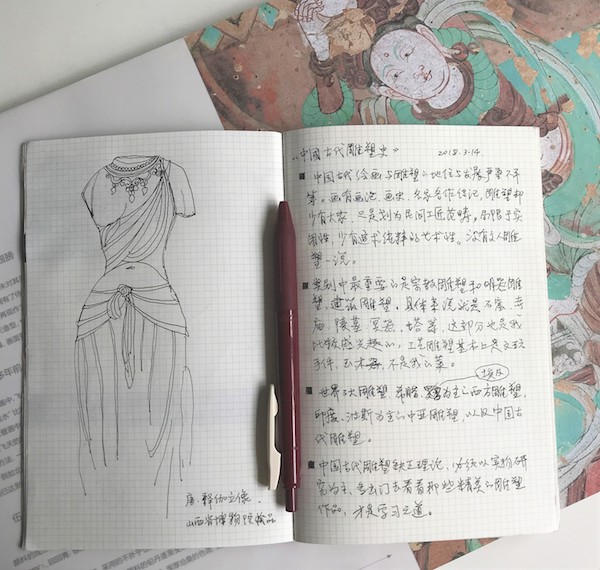 唐·释迦立像.
山西省博物院输品
《中国古代雕塑史》 2018.3.14
中国古代绘画与雕塑的地位与发展严重不平
等。画有画论、画史、名家名作传记,雕塑却
少有大家,只是划为民间工匠范畴,局限于实
用性,少有追求纯粹的艺术性。没有文人雕
塑一说。
类别中最重要的是宗教雕塑和明器雕
塑,建筑雕塑,具体来说就是石窟、寺
庙、陵墓、冥器、塔等,这部分也是我
比较感兴趣的,工艺雕塑基本上是文玩
手件,玉木,不是我的菜。
埃及
世界3大雕塑,希腊、为主的西方雕塑,
印度、波斯为主的中亚雕塑,以及中国古
代雕塑。
中国古代雕塑缺乏理论,必须以实物研
究为主,多出门去看看那些精美的雕塑
作品,才是学习之道。